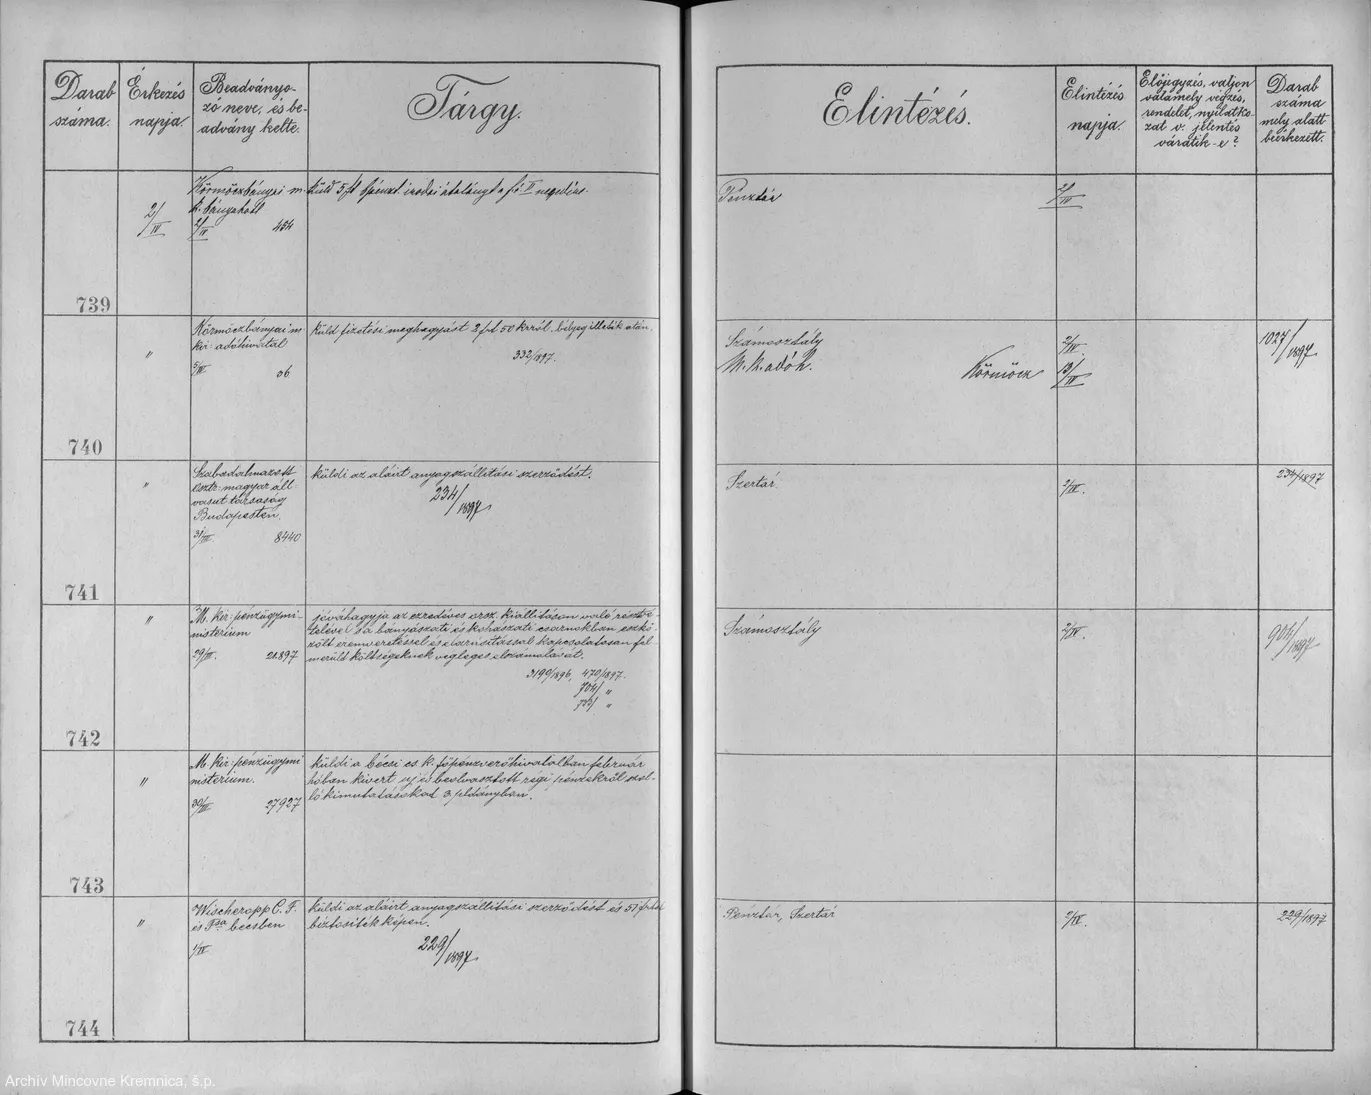 Darab száma.
Érkezés napja.
Beadványo-
zó neve, és be-
advány kelte.
Tárgy.
Elintézés.
Elintézés napja.
Előjegyzés, valjon
valamely végzés,
rendelet, nyilatko-
zat v. jelentés
váratik-e?
Darab
száma
mely alatt
beérkezett.
739
2/IV
Körmöczbányai m.
k. bányahatl
2/IV 454
küld 5 ft pénzt. irodai átalányt a f. é. II negedre.
Pénztár
2/IV
740
"
Körmöczbányai m.
kir. adóhivatal
5/III 06
küld fizetési meghagyást 2 frt 50 krról, bélyegilleték után.
332/897.
Számosztály
M. k. adóh. Körmöcz
2/IV.
13/IV
1027/1897
741
"
Szabadalmazott
osztr. magyar áll.
vasut társaság
Budapesten.
31/III. 8440
küldi az aláirt anyagszállitási szerződést.
234/1897
Szertár
2/IV.
234/1897
742
"
M. kir. pénzügymi-
nisterium
29/III. 21897
jóváhagyja az ezredéves orsz. kiállitáson való részvé-
telével s a bányászati és kohászati csarnokban eszkö-
zölt éremveréssel és elárusitással kapcsolatosan fel-
merült költségeknek végleges elszámolását.
3199/1896, 470/1897.
704/ "
733/ "
Számosztály
2/IV.
904/1897
743
"
M. kir. pénzügymi
nisterium.
30/III 27927
küldi a bécsi cs. k. főpénzverőhivatalban február
hóban kivert uj és beolvasztott régi pénzekről szol-
ló kimutatásokat 3 példányban.
744
"
Wischeropp C. F.
és Tsa bécsben
1/IV
küldi az aláirt anyagszállitási szerződést és 51 frtot
biztositék képen.
229/1897
Pénztár, Szertár
2/IV.
229/1897
Archív Mincovne Kremnica, š.p.